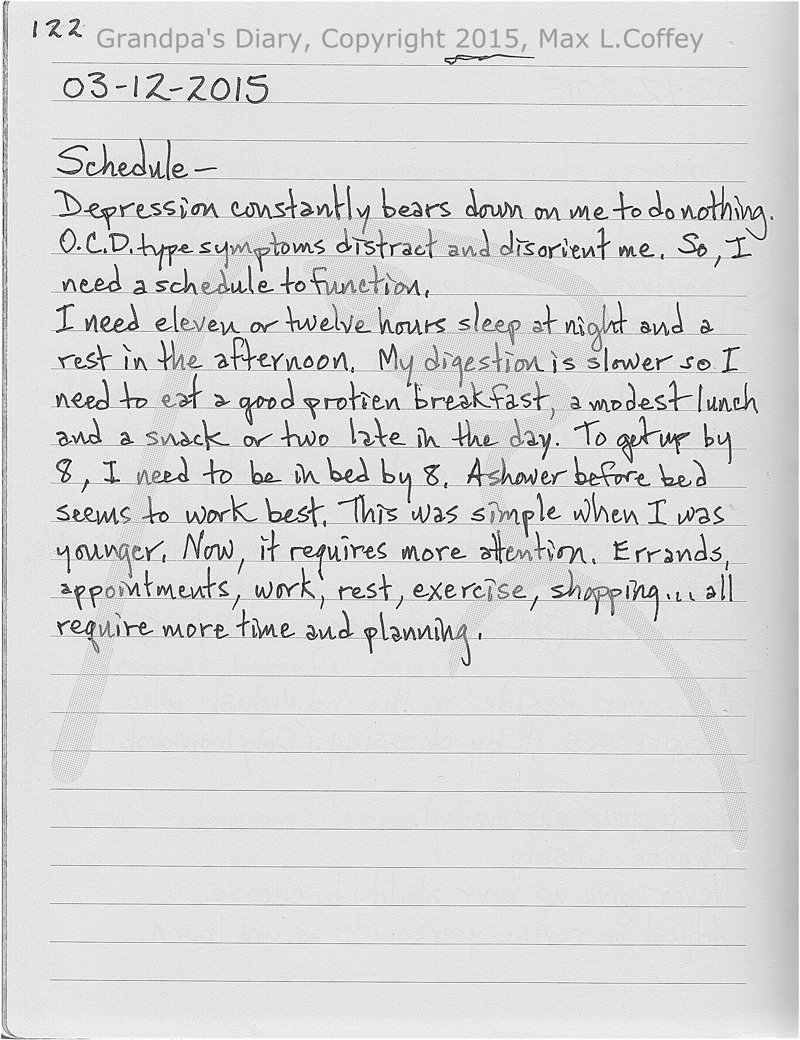 122
Grandpa's Diary, Copyright 2015, Max L.Coffey
03-12-2015
Schedule—
Depression constantly bears down on me to do nothing.
O.C.D. type symptoms distract and disorient me. So, I
need a schedule to function.
I need eleven or twelve hours sleep at night and a
rest in the afternoon. My digestion is slower so I
need to eat a good protien breakfast, a modest lunch
and a snack or two late in the day. To get up by
8, I need to be in bed by 8. A shower before bed
seems to work best. This was simple when I was
younger. Now, it requires more attention. Errands,
appointments, work, rest, exercise, shopping... all
require more time and planning.